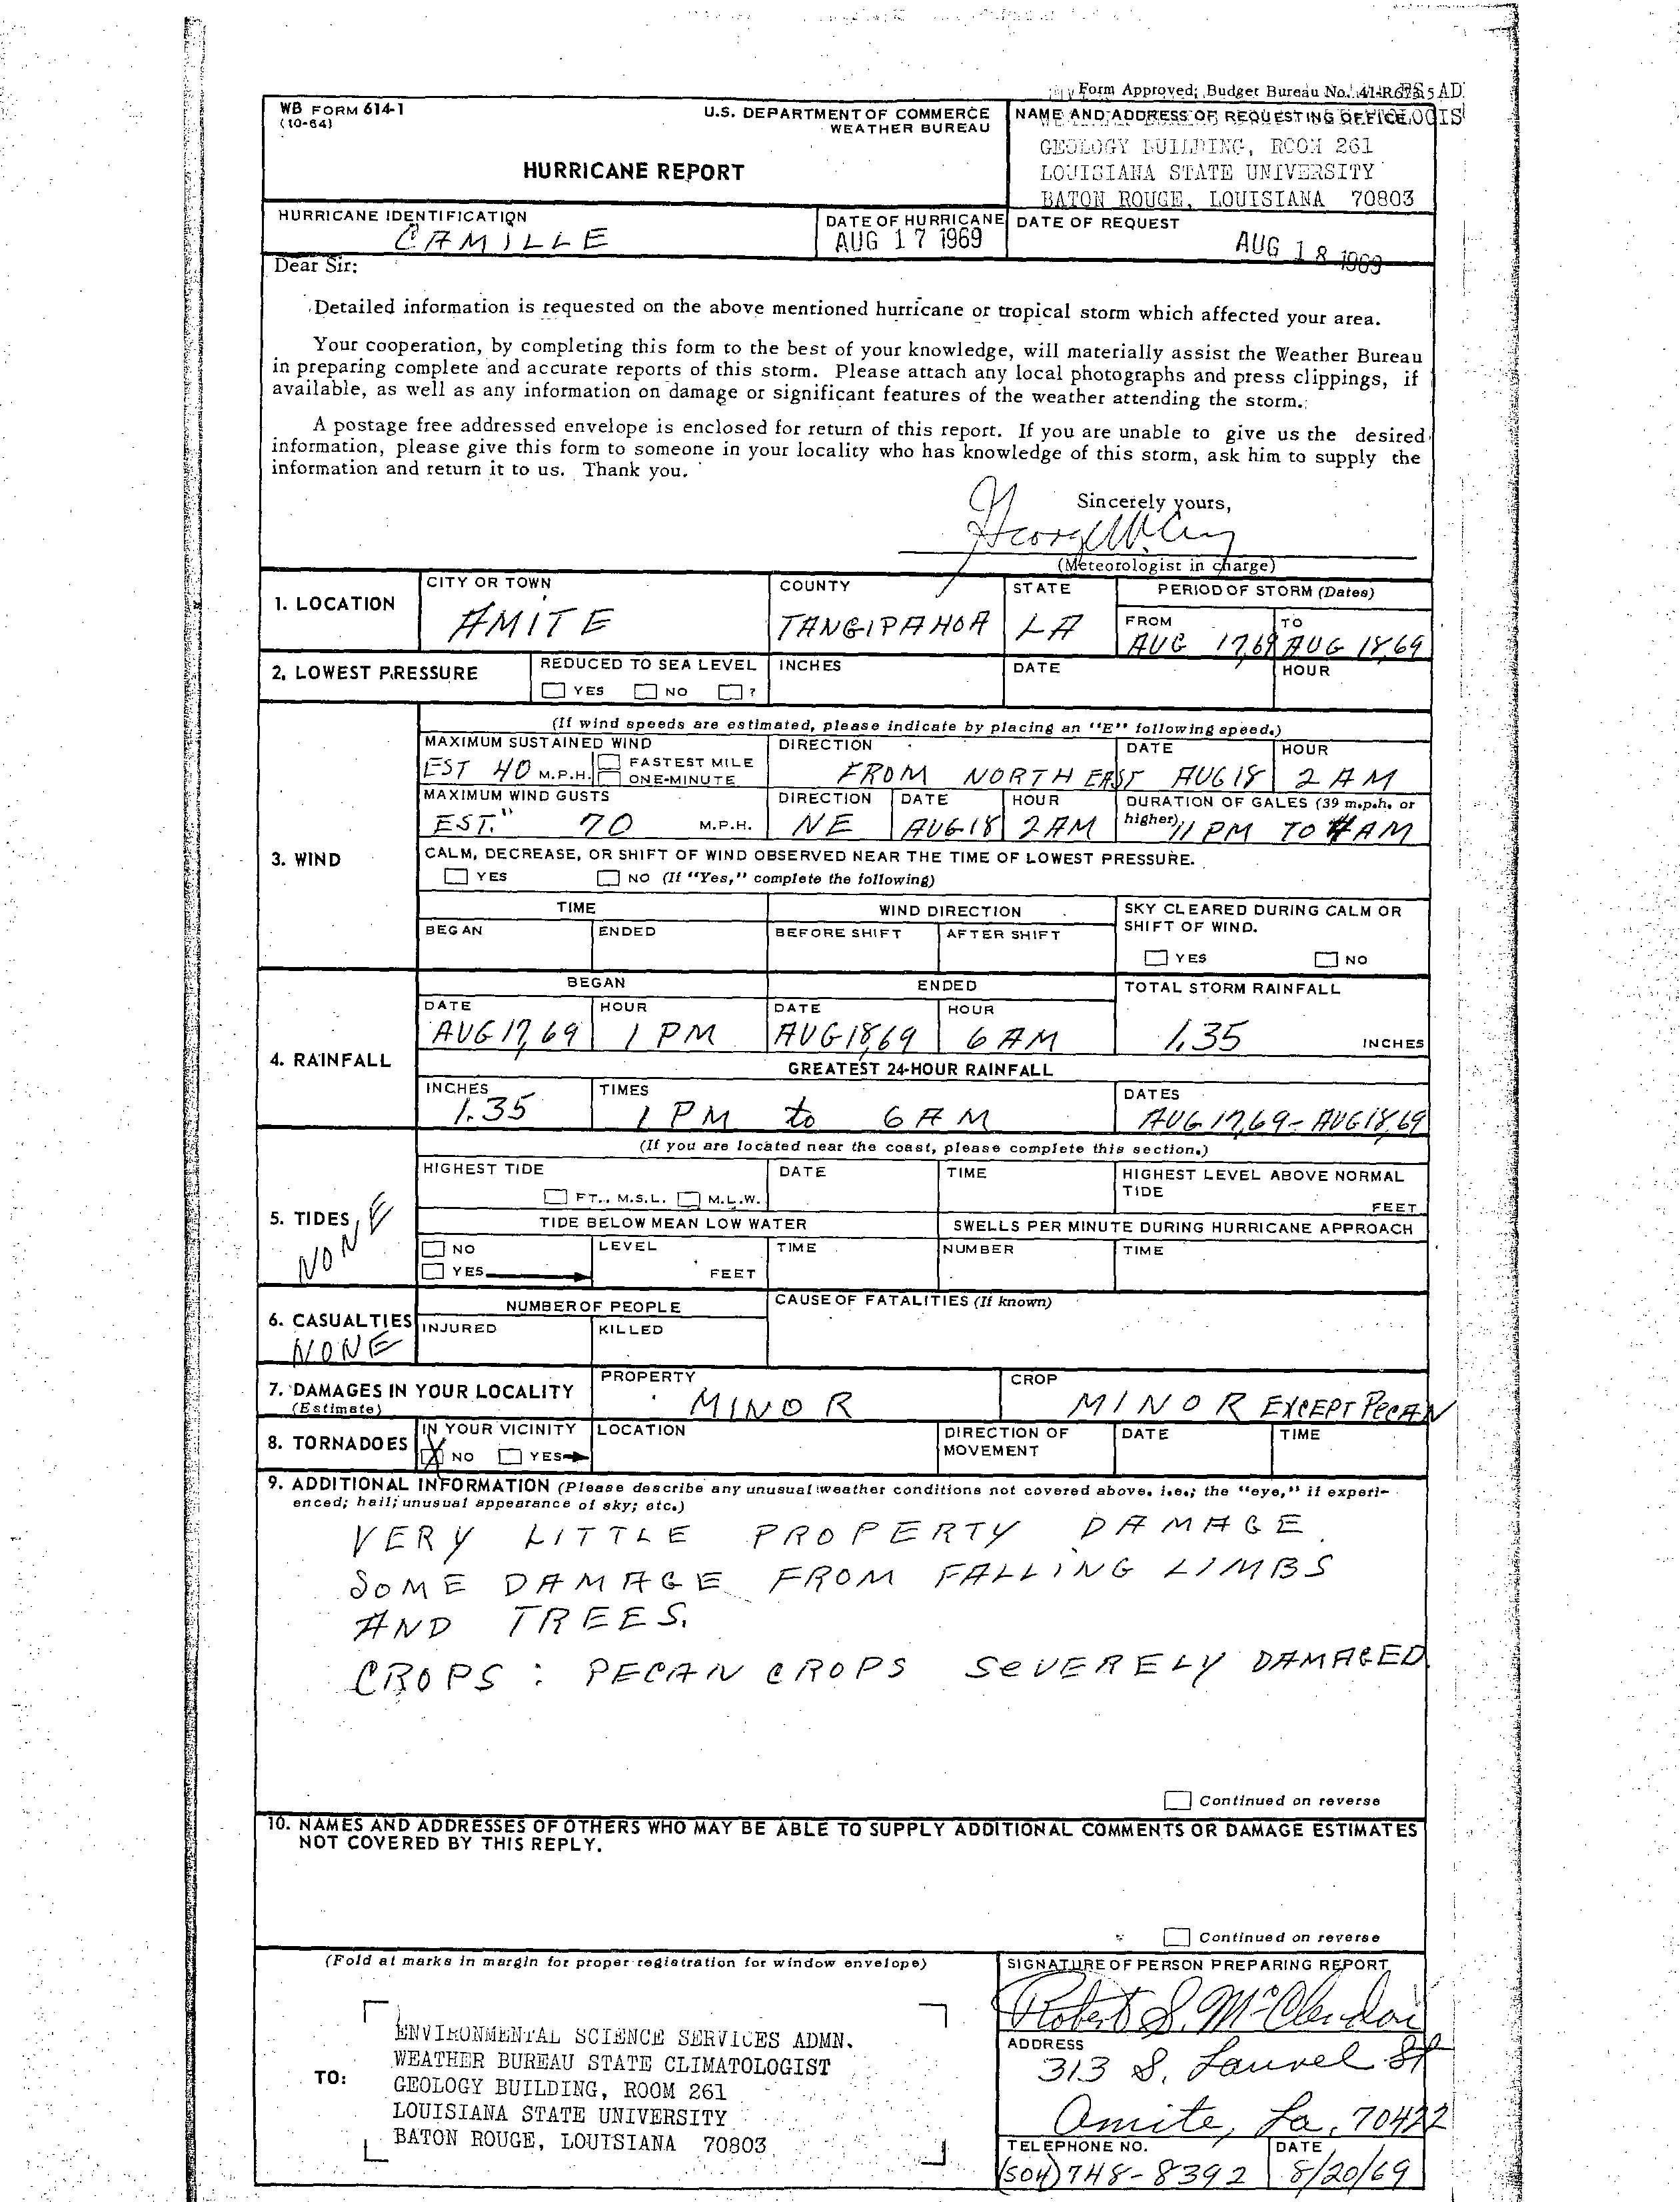 Form Approved; Budget Bureau No.
WB FORM 614-1
(10-64)
U.S. DEPARTMENT OF COMMERCE
WEATHER BUREAU
HURRICANE REPORT
NAME AND ADDRESS OF REQUESTING OFFICE
GEOLOGY BUILDING, ROOM 261
LOUISIANA STATE UNIVERSITY
BATON ROUGE, LOUISIANA 70803
HURRICANE IDENTIFICATION
CAMILLE
DATE OF HURRICANE
AUG 17 1969
DATE OF REQUEST
AUG 18 1969
Dear Sir:
Detailed information is requested on the above mentioned hurricane or tropical storm which affected your area.
Your cooperation, by completing this form to the best of your knowledge, will materially assist the Weather Bureau
in preparing complete and accurate reports of this storm. Please attach any local photographs and press clippings, if
available, as well as any information on damage or significant features of the weather attending the storm.
A postage free addressed envelope is enclosed for return of this report. If you are unable to give us the desired
information, please give this form to someone in your locality who has knowledge of this storm, ask him to supply the
information and return it to us. Thank you.
Sincerely yours,
(Meteorologist in charge)
1. LOCATION
CITY OR TOWN
AMITE
COUNTY
TANGIPAHOA
STATE
LA
PERIOD OF STORM (Dates)
FROM
AUG 17,69
TO
AUG 18,69
2. LOWEST PRESSURE
REDUCED TO SEA LEVEL
YES NO ?
INCHES
DATE
HOUR
3. WIND
(If wind speeds are estimated, please indicate by placing an "E" following speed.)
MAXIMUM SUSTAINED WIND
EST 40 M.P.H.
FASTEST MILE
ONE-MINUTE
DIRECTION
FROM NORTH EAST
DATE
AUG 18
HOUR
2 AM
MAXIMUM WIND GUSTS
EST. " 70 M.P.H.
DIRECTION
NE
DATE
AUG 18
HOUR
2 AM
DURATION OF GALES (39 m.p.h. or
higher)
11 PM TO 4 AM
CALM, DECREASE, OR SHIFT OF WIND OBSERVED NEAR THE TIME OF LOWEST PRESSURE.
YES NO (If "Yes," complete the following)
TIME
BEGAN
ENDED
WIND DIRECTION
BEFORE SHIFT
AFTER SHIFT
SKY CLEARED DURING CALM OR
SHIFT OF WIND.
YES NO
4. RAINFALL
BEGAN
DATE
AUG 17, 69
HOUR
1 PM
ENDED
DATE
AUG 18,69
HOUR
6 AM
TOTAL STORM RAINFALL
1.35 INCHES
GREATEST 24-HOUR RAINFALL
INCHES
1.35
TIMES
1 PM to 6 AM
DATES
AUG 17,69 - AUG 18,69
5. TIDES,
NONE
(If you are located near the coast, please complete this section.)
HIGHEST TIDE
FT., M.S.L. M.L.W.
DATE
TIME
HIGHEST LEVEL ABOVE NORMAL
TIDE
FEET
TIDE BELOW MEAN LOW WATER
SWELLS PER MINUTE DURING HURRICANE APPROACH
NO
YES
LEVEL
FEET
TIME
NUMBER
TIME
6. CASUALTIES
NONE
NUMBER OF PEOPLE
INJURED
KILLED
CAUSE OF FATALITIES (If known)
7. DAMAGES IN YOUR LOCALITY
(Estimate)
PROPERTY
MINOR
CROP
MINOR EXCEPT PECAN
8. TORNADOES
IN YOUR VICINITY
X NO YES
LOCATION
DIRECTION OF
MOVEMENT
DATE
TIME
9. ADDITIONAL INFORMATION (Please describe any unusual weather conditions not covered above. i.e.; the "eye," if experi-
enced; hail; unusual appearance of sky; etc.)
VERY LITTLE PROPERTY DAMAGE
SOME DAMAGE FROM FALLING LIMBS
AND TREES.
CROPS : PECAN CROPS SEVERELY DAMAGED
Continued on reverse
10. NAMES AND ADDRESSES OF OTHERS WHO MAY BE ABLE TO SUPPLY ADDITIONAL COMMENTS OR DAMAGE ESTIMATES
NOT COVERED BY THIS REPLY.
Continued on reverse
(Fold at marks in margin for proper registration for window envelope)
TO:
ENVIRONMENTAL SCIENCE SERVICES ADMN.
WEATHER BUREAU STATE CLIMATOLOGIST
GEOLOGY BUILDING, ROOM 261
LOUISIANA STATE UNIVERSITY
BATON ROUGE, LOUISIANA 70803
SIGNATURE OF PERSON PREPARING REPORT
Robert S. McClendon
ADDRESS
313 S. Laurel St
Amite, La. 70422
TELEPHONE NO.
(504) 748-8392
DATE
8/20/69